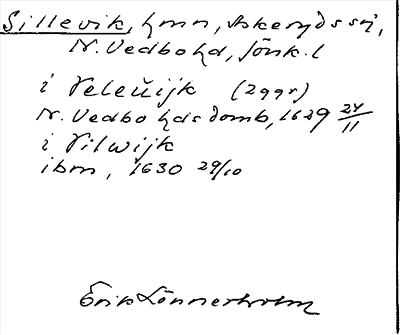 Sillevik, hmn, Askeryds sn,
N. Vedbo hd, Jönk. l
i Veleŭijk (299r)
N. Vedbo hds domb, 1629 24/11
i Vilwijk
ibm, 1630 29/10
Erik Lönnerholm